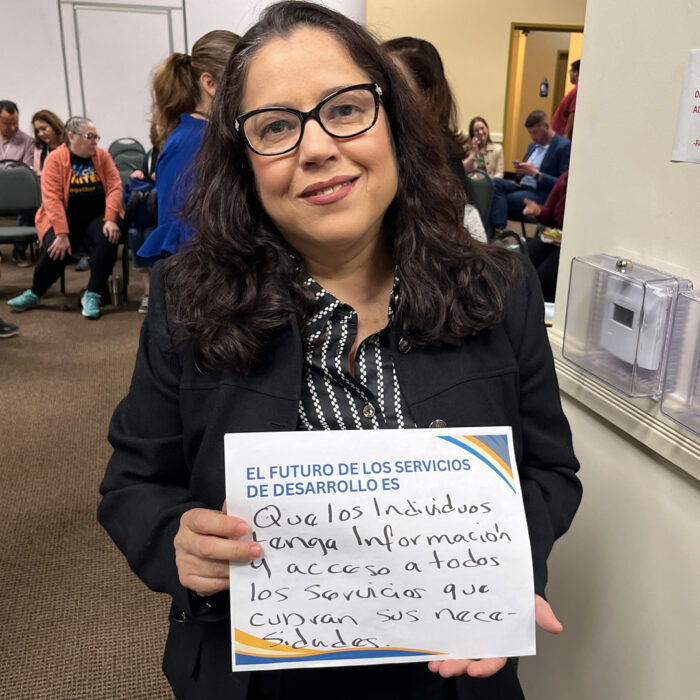 EL FUTURO DE LOS SERVICIOS
DE DESARROLLO ES
Que los Individuos
tenga Información
y acceso a todos
los Servicios que
cubran sus nece-
sidades.